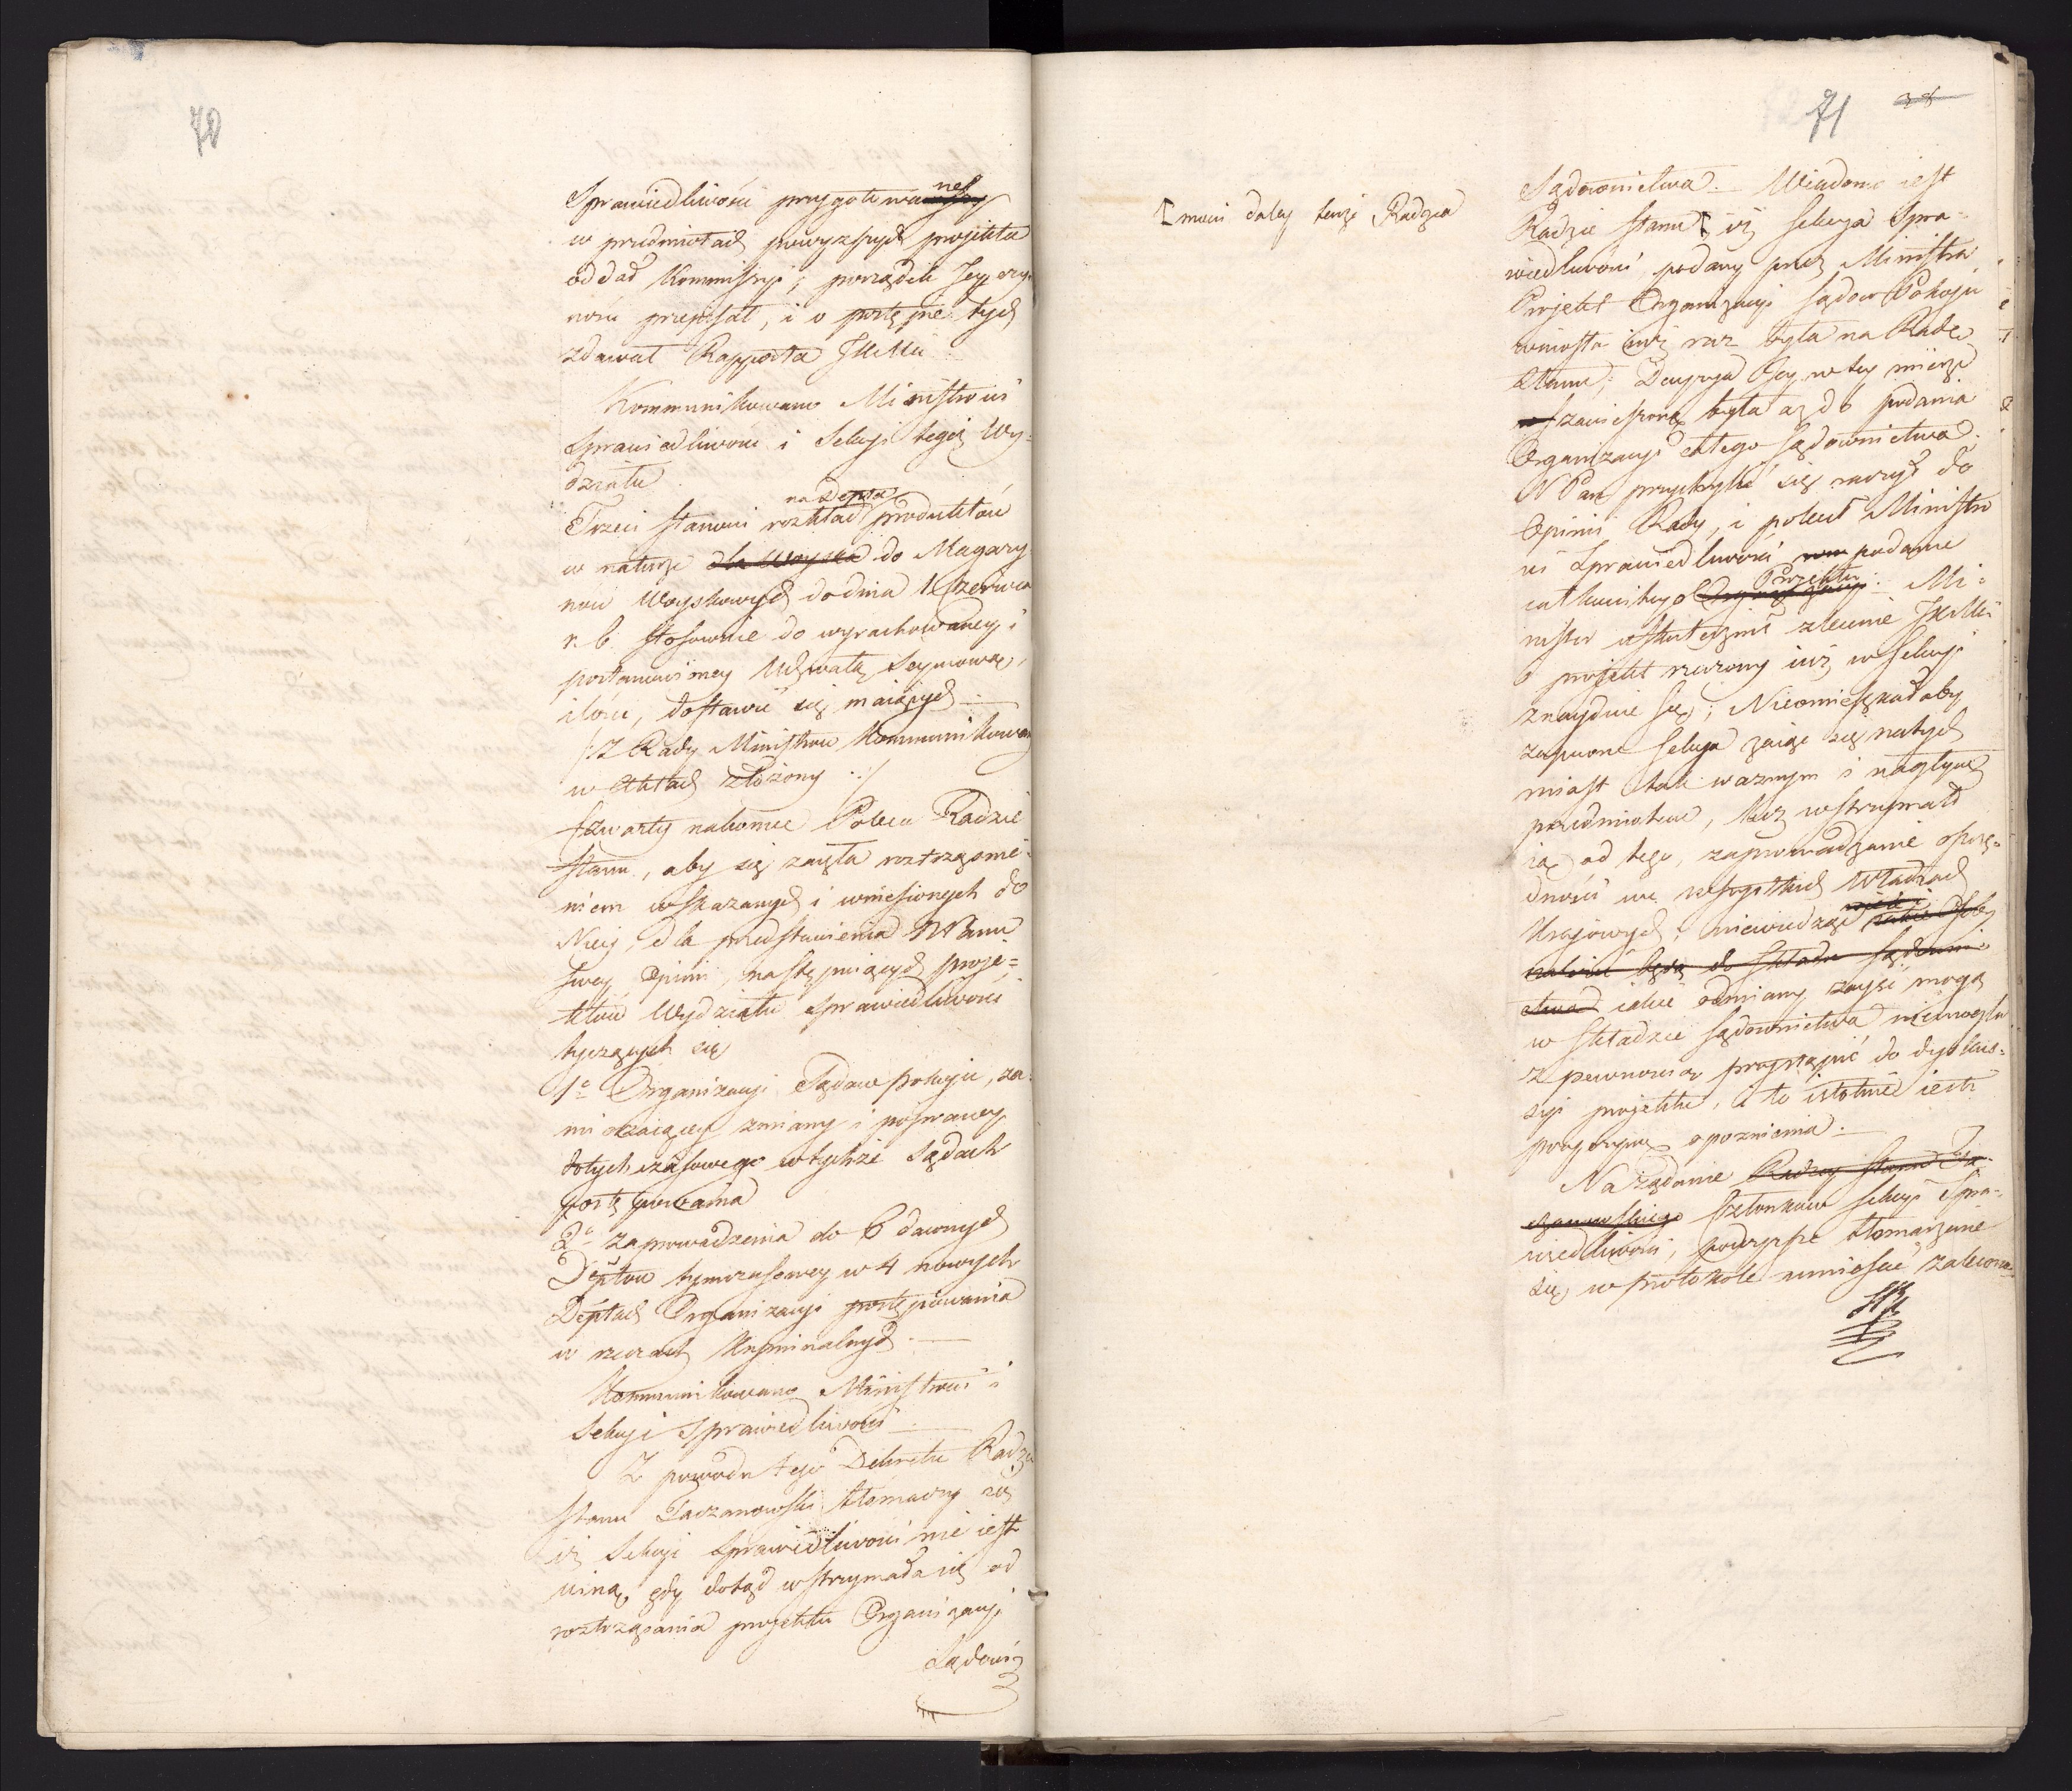 70
Sprawiedliwości przygotowane
w przedmiotach powyższych projekta
oddał Kommissyi, porządek Jey czyn
ności przepisał, i o postępie tych
zdawał Rapporta JKMci
Kommunikowano Ministrowi
Sprawiedliwości i Sekcyi tegoż Wy=
działu
Trzeci stanowi rozkład na Depta produktów
w naturze dla Woyska do Magazy
nów Woyskowych do dnia 1 Czerwca
r. b. stosownie do wyrachowaney i
postanowioney Uchwałą Seymową,
ilości, dostawić się maiących
/: Z Rady Ministrów Kommunikowany
w aktach złożony :/
Czwarty nakoniec Poleca Radzie
Stanu, aby się zaięła roztrząsnie=
niem wskazanych i wniesionych do
Niey, dla przedstawienia NPanu
swey Opinii, następuiących proje=
któw Wydziału Sprawiedliwości
tyczących się
1o Organizacyi Sądów pokoju, za
mierzaiącey zmiany i poprawy
dotychczasowego w tychże Sądach
postępowania
2o zaprowadzenia do 6 dawnych
Deptów tymczasowey w 4 nowych
Deptach Organizacyi postępowania
w rzeczach Kryminalnych
Kommunikowano Ministrowi i
Sekcyi Sprawiedliwości
Z powodu tego Dekretu Radzca
Stanu tłomaczy się
iż Sekcyi Sprawiedliwości nie iest
winą, gdy dotąd wstrzymała się od
roztrząsania projektu Organizacyi
Sądowni
71 38
⌈ mówi daley tenże Radzca
Sądownictwa. Wiadomo iest
Radzie Stanu ⌈ iż Sekcya Spra=
wiedliwości podany przez Ministra
Projekt Organizacyi Sądów Pokoju
wniosła iuż raz była na Radę
Stanu; Decyzya Jey w tey mierze
zawieszoną była aż do podania
Organizacyi całego Sądownictwa.
N Pan przychylić się raczył do
Opinii Rady, i polecił Ministro
wi Sprawiedliwości podanie
całkowitego Organizacyi Projektu. Mi=
nister uskutecznił zlecenie JKMci
projekt rzeczony iuż w Sekcyi
znayduie się; Nieomieszkałaby
zapewne Sekcya zaiąć się natych
miast tak ważnym i nagłym
przedmiotem, lecz wstrzymała
ią od tego, zaprowadzenie oszczę=
dności we wszystkich Władzach
Kraiowych; niewiedząc wiele i iakie Osoby
należeć będą do składu Sądowni=
ctwa iakie odmiany zayść mogą
w składzie Sądownictwa niemogła
z pewnością przystąpić do dyskus=
syi projektu, i to istotnie iest
przyczyną opoznienia.
Na żądanie Radzcy Stanu
Członków Sekcyi Spra=
wiedliwości, powyższe tłomaczenie
się w protokole umieścić zalecono